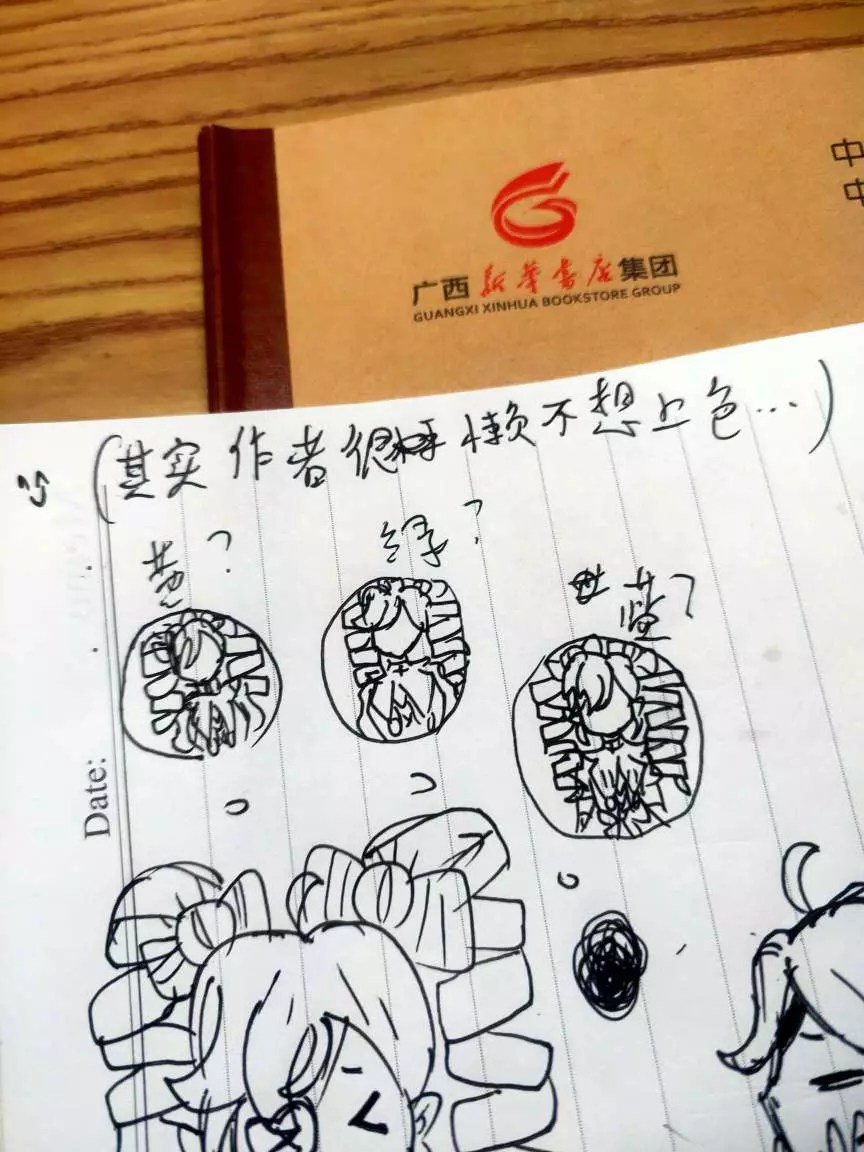 中
中
广西新华书店集团
GUANGXI XINHUA BOOKSTORE GROUP
(其实作者很懒不想上色...)
黄?
绿?
蓝?
Date: